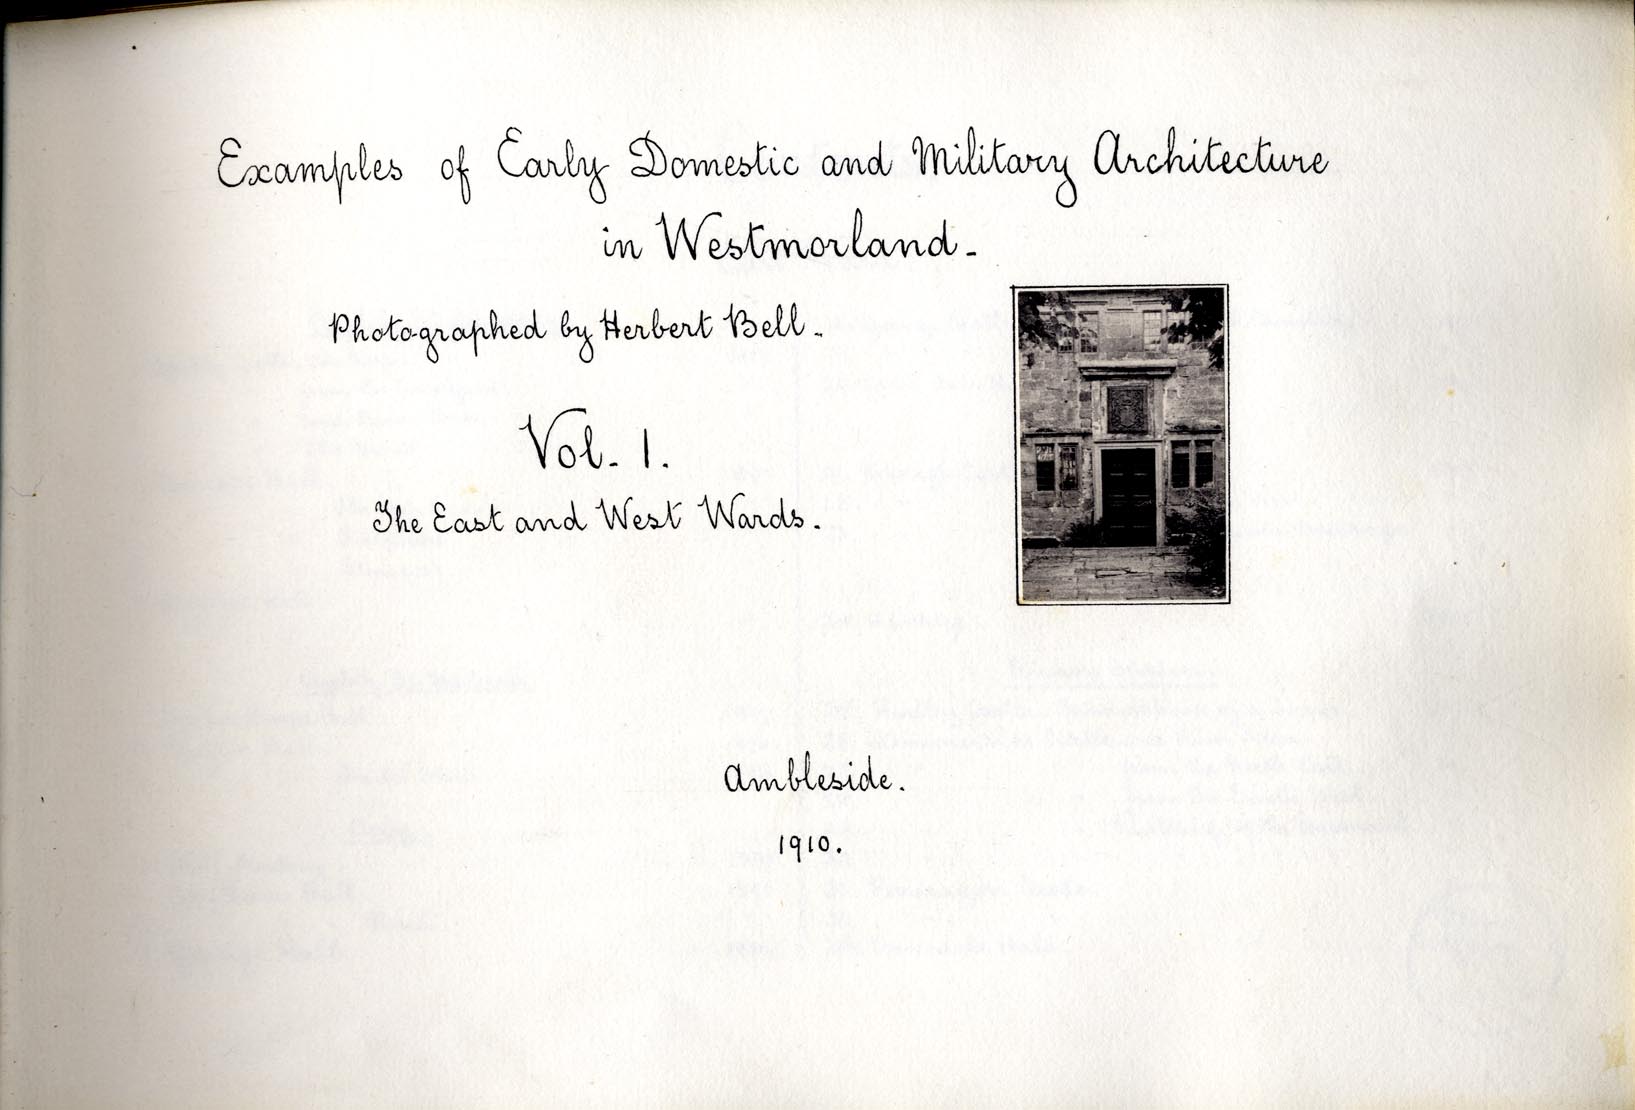 Examples of Early Domestic and Military Architecture
in Westmorland.
Photographed by Herbert Bell.
Vol. 1.
The East and West Wards.
Ambleside.
1910.